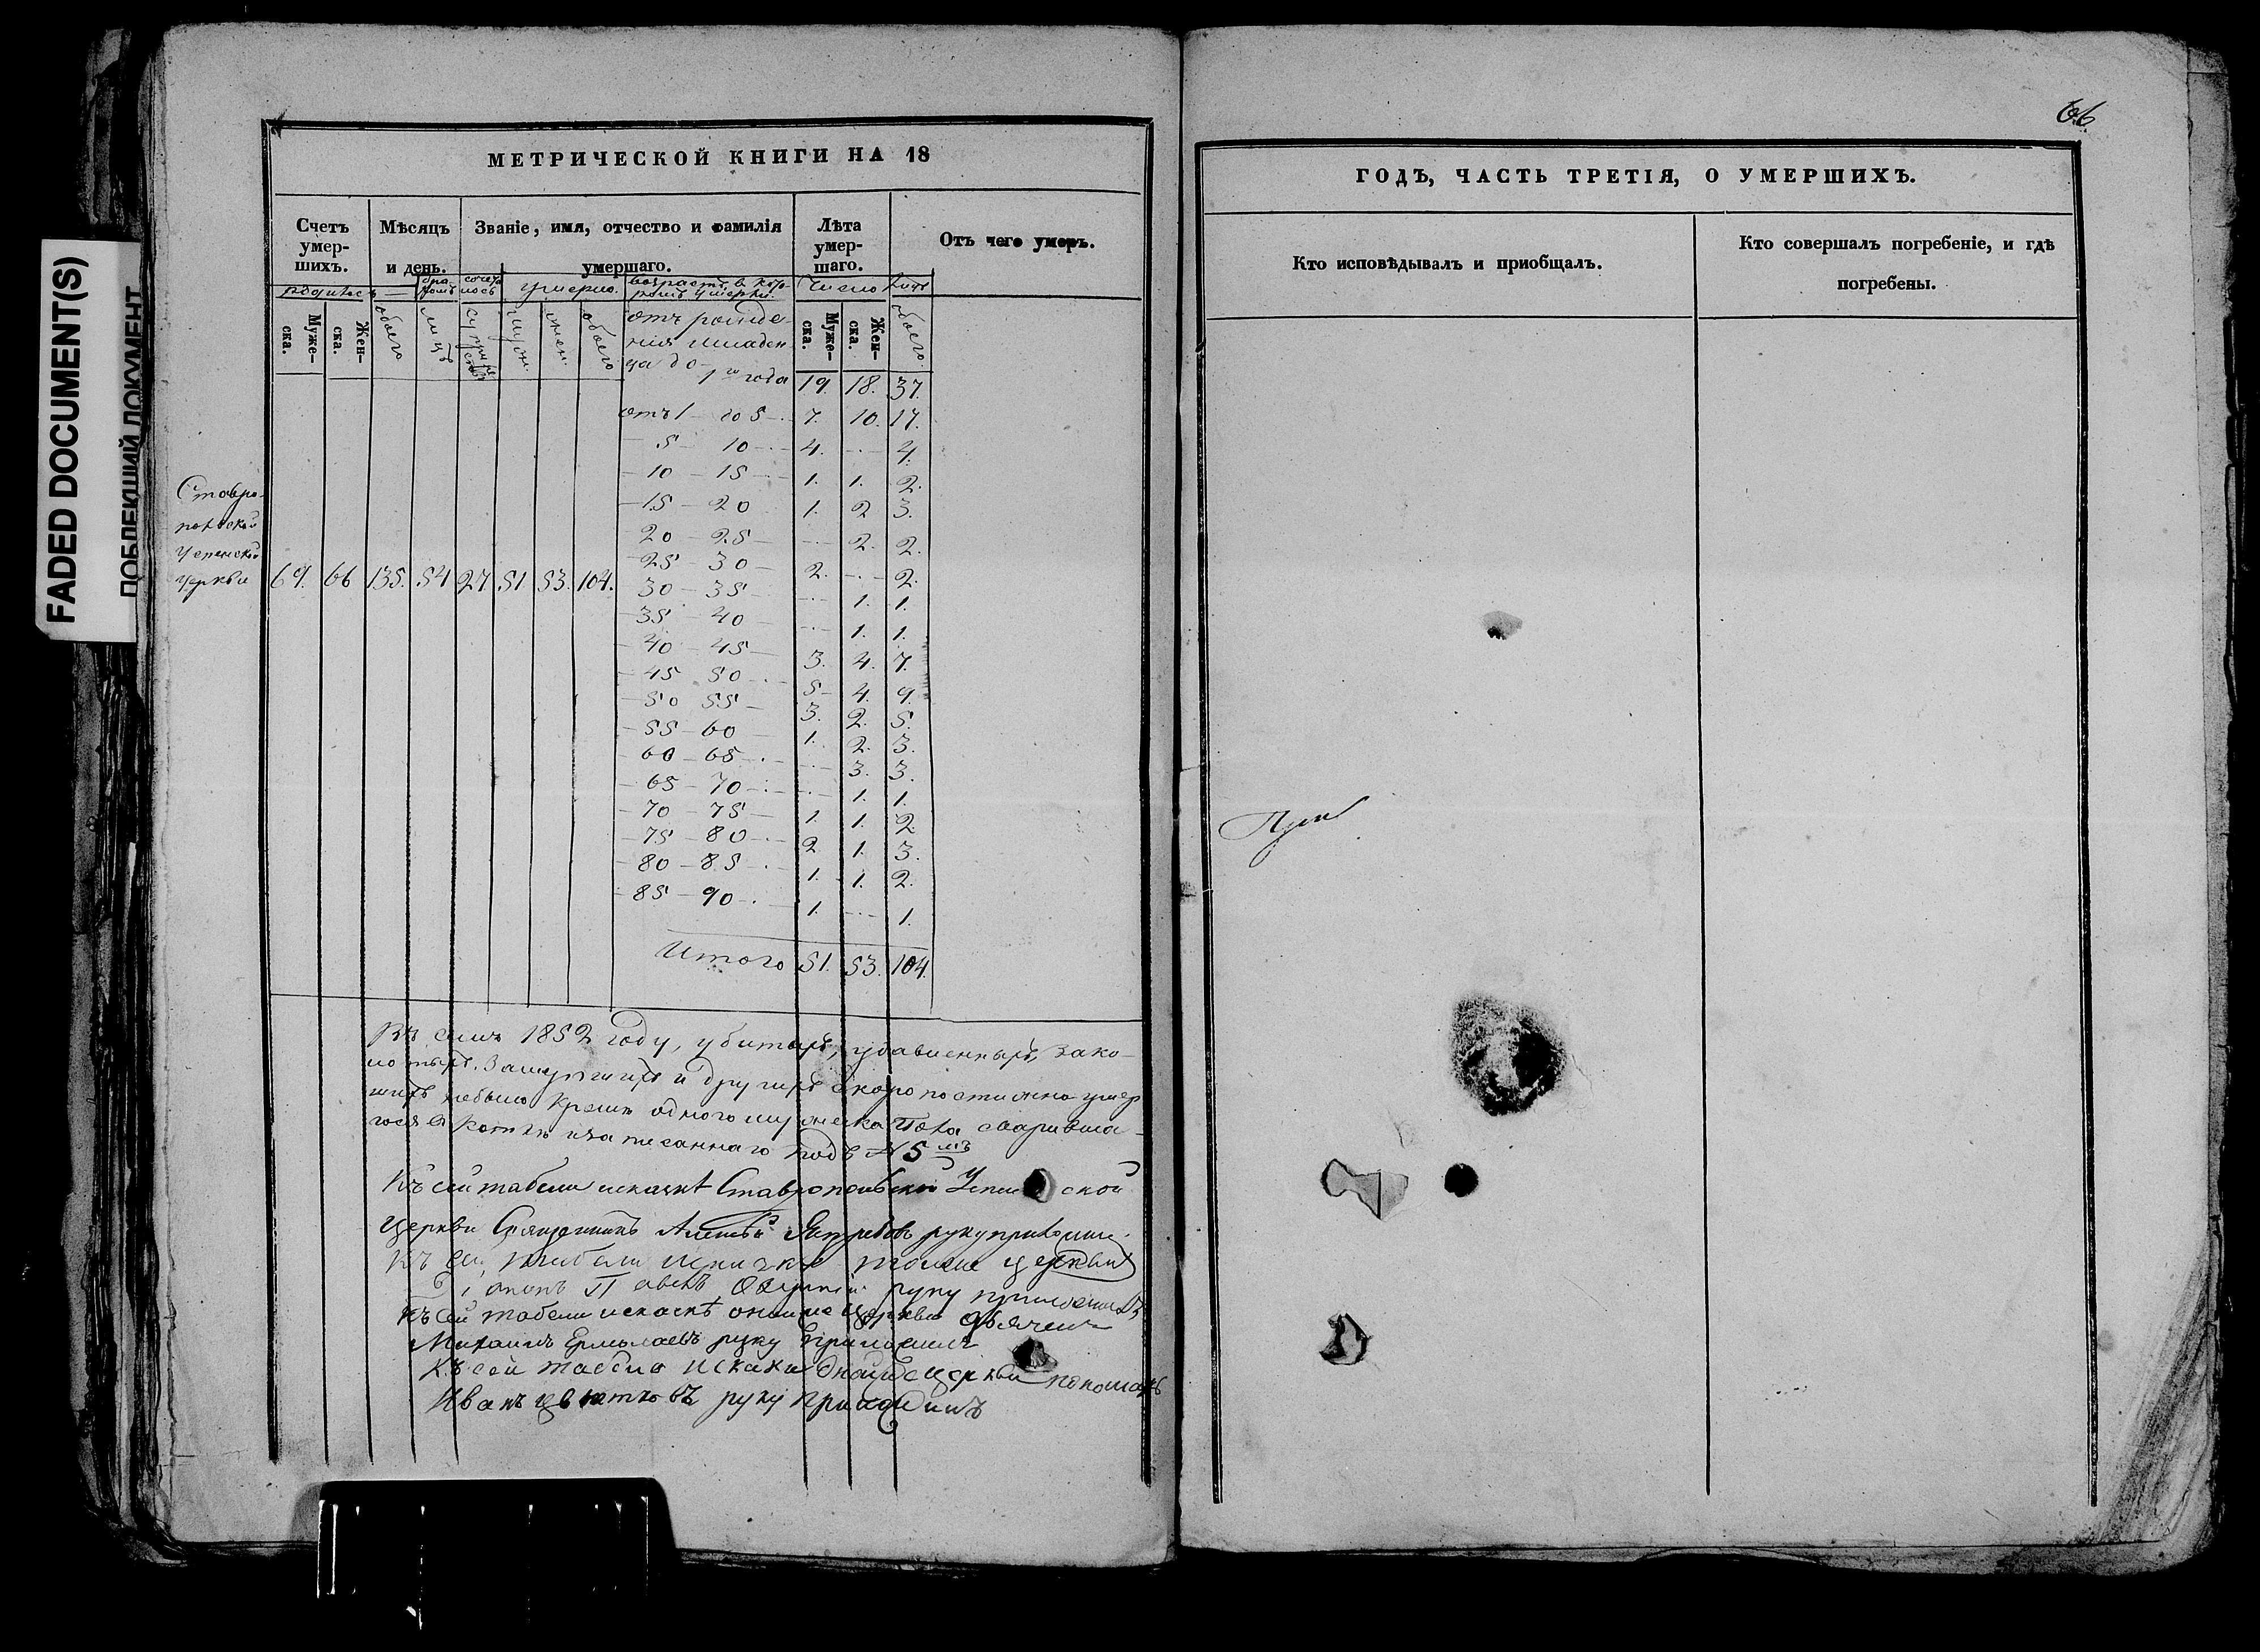 FADED DOCUMENT(S)
ПОБЛЕКШИЙ ДОКУМЕНТ
МЕТРИЧЕСКОЙ КНИГИ НА 18
Счетъ умер- шихъ.
Мѣсяцъ и день.
Званіе, имя, отчество и фамилія умершаго.
Лѣта умер- шаго.
Отъ чего умеръ.
родилось
умерло.
возрастъ в кото-
ромъ умерли.
Число лицъ
Муже- ска. Жен- ска. обоего лицъ обоего Муже- ска. Жен- ска. обоего
отъ рожде-
нія младен
ца до
1го года 19. 18. 37.
отъ 1 до 5 7. 10. 17.
5 10 4. — 4.
10 15 1. 1. 2.
15 20 1. 2 3.
20 25 — 2. 2.
25 30 2. — 2.
30 35 — 1. 1.
35 40 — 1. 1.
40 45 3. 4. 7.
45 50 5 4. 9.
50 55 3. 2. 5.
55 60 1. 2. 3.
60 65 — 3. 3.
65 70 — 1. 1.
70 75 1. 1. 2
75 80 2 1. 3.
80 85 1. 1. 2.
85 90 1. — 1.
Ставро-
польской
церкви 69. 66 135. 54 27. 51 53. 104.
Итого 51. 53. 104.
Въ семъ 1852 году, убитыхъ, удавленныхъ, зако-
лотыхъ и другихъ скоропостижно умер
шихъ небыло кроме одного мужеска пола сваривша-
гося в котлѣ и записаннаго подъ № 5 мъ
Къ сей табели Ставропольской
церкви Священникъ Алексѣй Ястребовъ руку приложилъ.
Къ сей табели тоеже церкви
руку приложилъ
Къ сей табели оной же церкви
Михаилъ Ермолаевъ руку приложилъ
Къ сей оной же церкви пономарь
Иванъ Цвѣтковъ руку приложилъ
66
ГОДЪ, ЧАСТЬ ТРЕТІЯ, О УМЕРШИХЪ.
Кто исповѣдывалъ и приобщалъ.
Кто совершалъ погребеніе, и гдѣ
погребены.